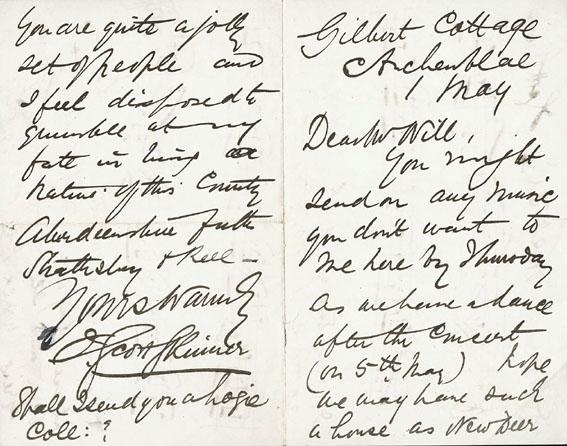 Gilbert Cottage
Auchenblae
May
Dear Mr Will,
You might
send on any music
you don't want to
me here by Thursday
as we have a dance
after the Concert
(on 5th May) hope
we may have such
a house as New Deer
You are quite a jolly
set of people and
I feel disposed to
grumble at my
fate in being a
native of this County
Aberdeenshire for the
Strathspey & Reel —
Yours Warmly
J Scott Skinner
Shall I send you a Logie
Coll: ?